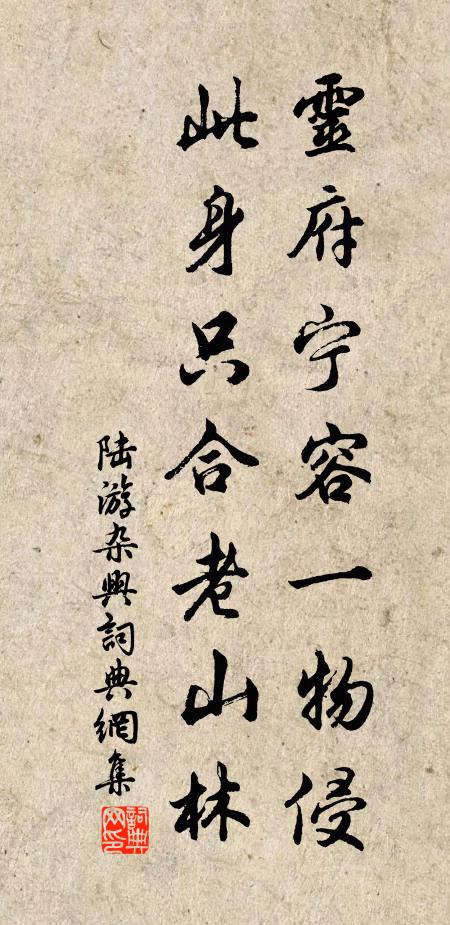 靈府宁容一物侵
此身只合老山林
陆游杂興詞典網集
詞典網印